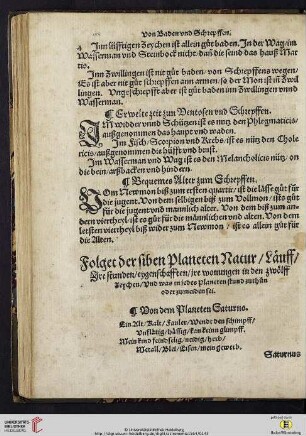 Von Baden vnd Schrepffen.
Inn lüfftigen Zeychen ist allein gůt baden. In der Wag/im
Wasserman vnd Steinbock nicht/ dañ die seind das hauß Mar
tio.
Inn Zwillingen ist nit gůt baden/ von Schrepffens wegen/
Es ist aber nit gůt schrepffen ann armen/ so der Mon ist iñ Zwil
lingen. Vngeschrepfft aber ist gůt baden inn Zwillingen vnnd
Wasserman.
¶ Erwelte zeit zum Ventosen vnd Schrepffen.
IM widder vnnd Schützen ist es nutz den Phlegmaticis/
außgenommen das haupt vnd waden.
Im Fisch/ Scorpion vnd Krebs/ ist es nütz den Chole
ricis/ außgenommen die hüfft vnd brust.
Im Wasserman vnd Wag ist es den Melancholicis nütz/ on
die bein/ arßbacken vnd hindern.
¶ Bequemes Alter zum Schrepffen.
VOm Newmon biß zum ersten quartir/ ist die lässe gůt für
die jugent. Von dem selbigen biß zum Vollmon/ ist es gůt
für die jungen vnd mannlich alter. Von dem biß zum an-
dern viertheyl ist es gůt für die männlichen vnd alten. Von dem
letsten viertheyl biß wider zum Newmon/ ist es allein gůt für
die Alten.
Folget der siben Planeten Natur/ Läuff/
Ire stunden/ eygenschafften/ jre wonungen in den zwölff
Zeychen/ Vnd was in jedes planeten stund zuthůn
oder zumeiden sei.
¶ Von dem Planeten Saturno.
Ein Alt/ Kalt/ Fauler/ Wendt den schimpff/
Vnflätig/ hässig/ kan keine glimpff.
Mein kind feindselig/ neidig/ herb/
Metall/ Blei/ Eisen/ mein gewerb.
Saturnus
UNIVERSITÄTS-
BIBLIOTHEK
HEIDELBERG
© Universitätsbibliothek Heidelberg